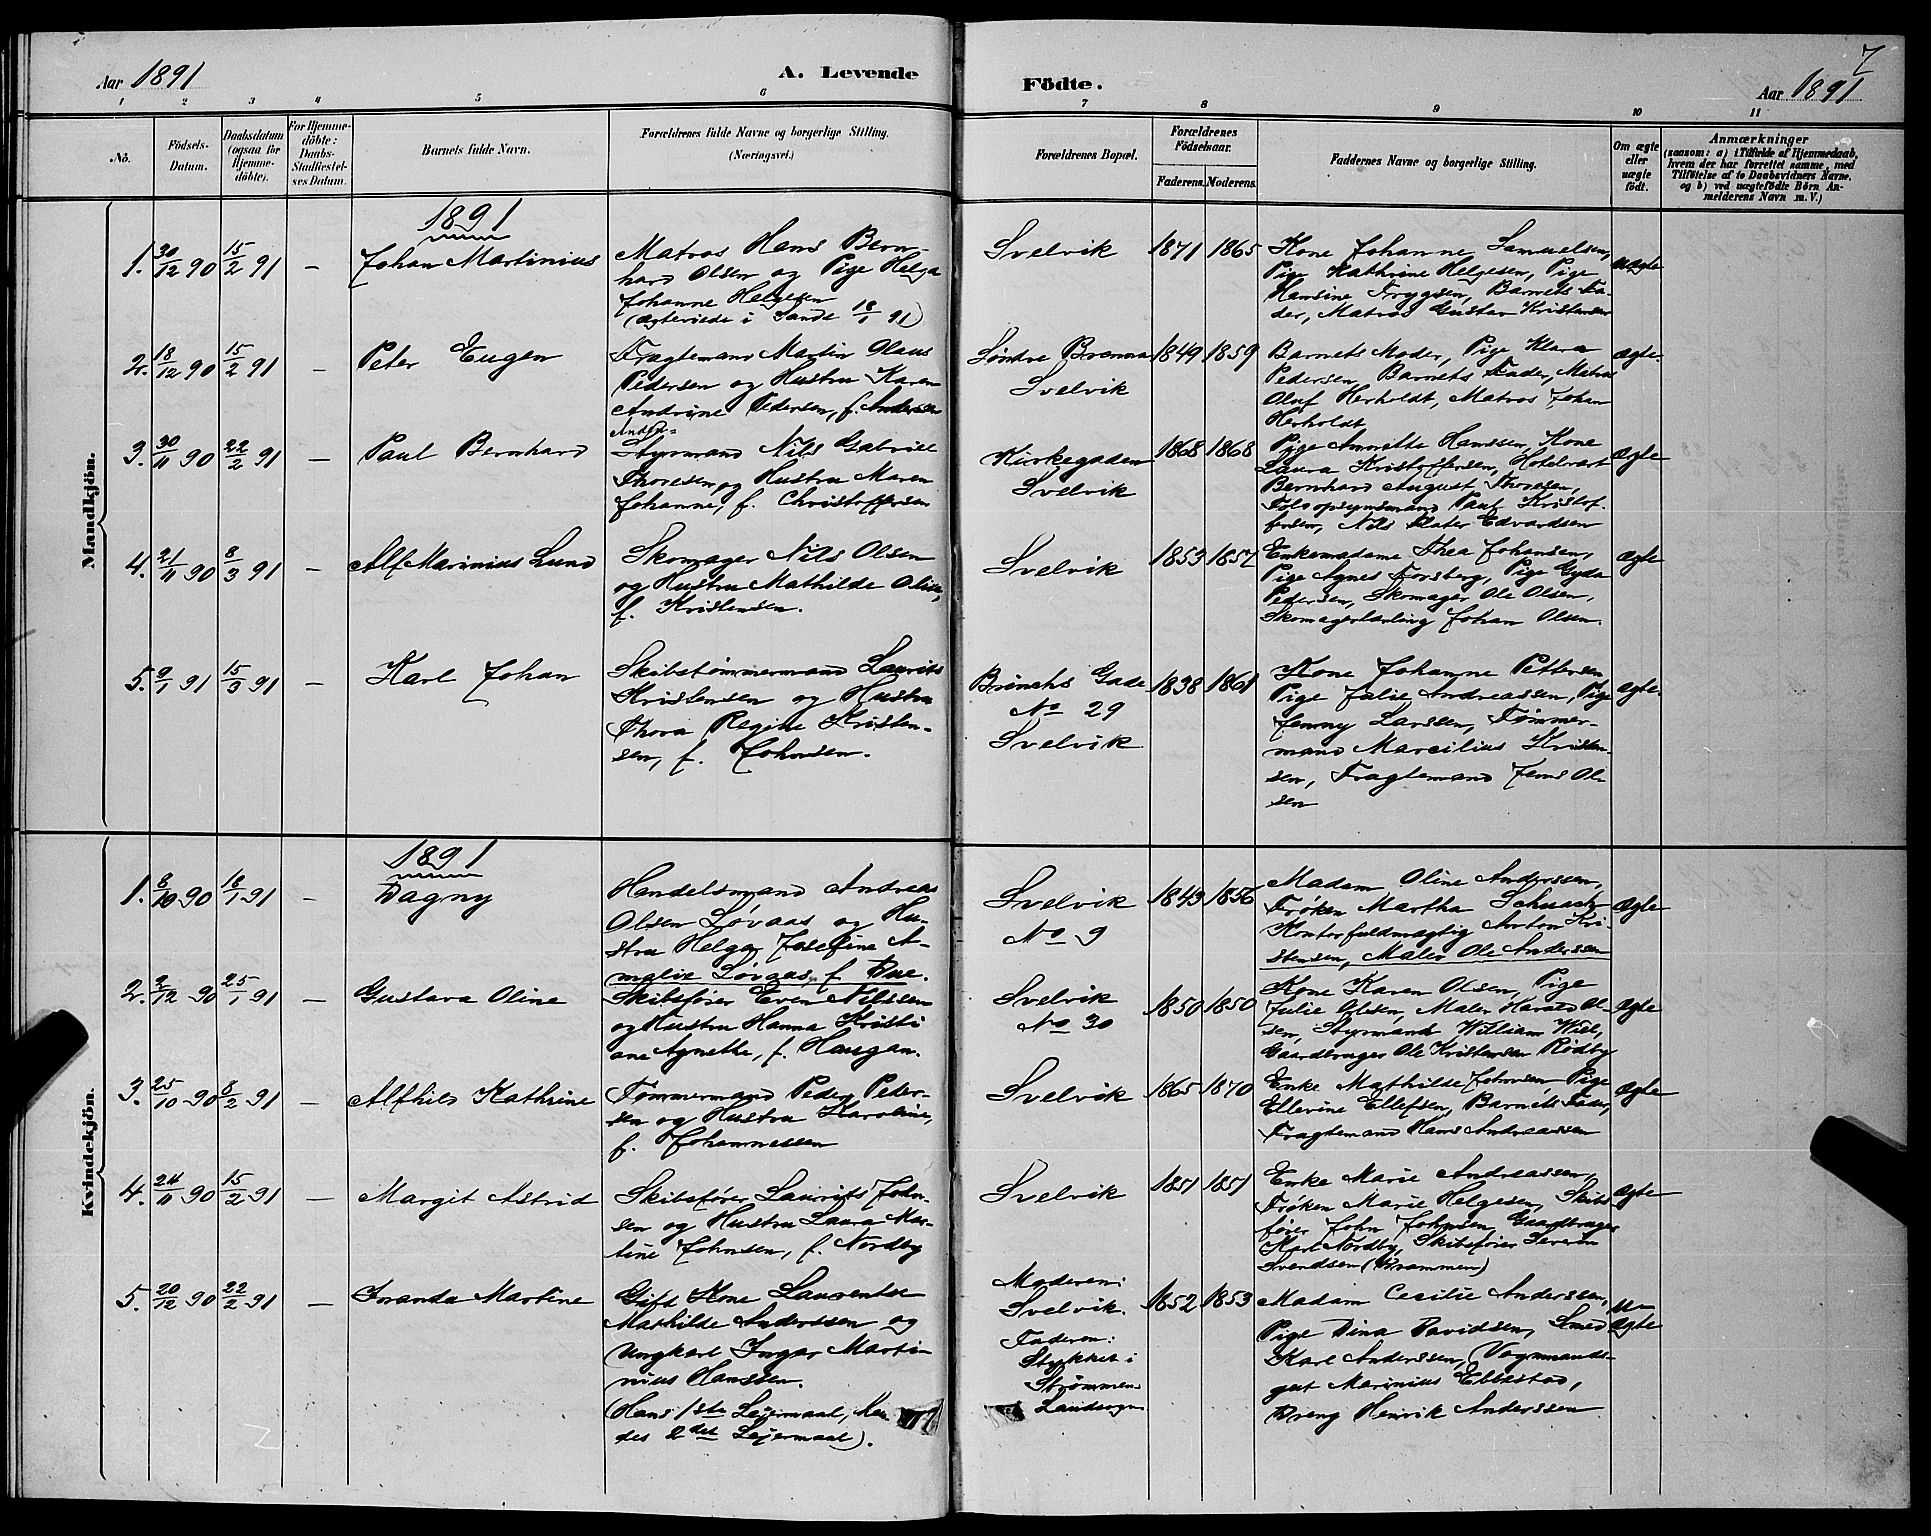 7
Aar 1891
A. Levende Födte.
Aar 1891
1 2 3 4 5 6 7 8 9 10 11
No.
Födsels-
Datum.
Daabsdatum
(ogsaa for
Hjemme-
döbte).
For Hjemme-
döbte:
Daabs-
Stadfæstel-
ses Datum.
Barnets fulde Navn.
Forældrenes fulde Navne og borgerlige Stilling.
(Næringsvei.)
Forældrenes Bopæl.
Forældrenes
Födselsaar.
Faderens. Moderens.
Faddernes Navne og borgerlige Stilling.
Om ægte
eller
uægte
født.
Anmærkninger
(saasom: a) i Tilfælde af Hjemmedaab,
hvem der har forrettet samme, med
Tilføielse af to Daabsvidners Navne,
og b) ved uægtefödte Börn An-
melderens Navn m. V.)
Mandkjön.
1891
1. 30/12 90 15/2 91 – Johan Martinius
Matros Hans Bern-
hard Olsen og Pige Helga
Johanne Helgesen
(ægteviede i Sande 18/1 91)
Svelvik
1871 1865
Kone Johanne Samuelsen,
Pige Kathrine Helgesen, Pige
Hansine Trygsen, Barnets Fa-
der, Matros Gustav Kristensen
uægte
2. 18/12 90 15/2 91 – Peter Eugen
Fragtemand Martin Olaus
Pedersen og Hustru Karen
Andrine Pedersen, f. Andersen
Søndre Bramma
Svelvik
1849 1859
Barnets Moder, Pige Klara
Pedersen, Barnets Fader, Matros
Oluf Herholdt, Matros Johan
Herholdt
ægte.
3. 30/11 90 22/2 91 – Paul Bernhard
Styrmand Nils Gabriel
Thoresen og Hustru Maren
Johanne, f. Christoffersen
Kirkegaden
Svelvik
1868 1868
Pige Annette Hanssen, Kone
Laura Kristoffersen, Hotelvært
Bernhard August Thoresen,
Toldopsynsmand Paul Kristof-
fersen, Nils Edvardsen
ægte
4. 21/11 90 8/3 91 – Alf Marinius Lund
Skomager Nils Olsen
og Hustru Mathilde Olsen,
f. Kristensen.
Svelvik
1853 1857
Enkemadame Thea Johansen,
Pige Agnes Forsberg, Pige Gyda
Pedersen, Skomager Ole Olsen,
Skomagerlærling Johan Olsen.
ægte
5. 9/1 91 15/3 91 – Karl Johan
Skibstømmermand Laurits
Kristensen og Hustru
Thora Regine Kristen-
sen, f. Johnsen.
Brinchs Gade
No 29
Svelvik
1838 1861
Kone Johanne Pettersen,
Pige Julie Andreassen, Pige
Jenny Larssen, Tømmer-
mand Marcilius Kristen-
sen, Fragtemand Jens Ol-
sen
ægte.
Kvindekjön.
1891
1. 8/10 90 18/1 91 – Dagny
Handelsmand Andreas
Olsen Løvaas og Hu-
stru Helga Josefine A-
malie Løvaas, f. Bue.
Svelvik
No 9
1843 1856
Madam Oline Anderssen,
Frøken Martha Schuack,
Kontorfuldmægtig Anton Kri-
stensen, Maler Ole Andersen
ægte
2. 2/12 90 25/1 91 – Gustava Oline
Skibsfører Even Nilssen
og Hustru Hanna Kristi
ane Agnethe, f. Haugan.
Svelvik
No 30
1850 1850
Kone Karen Olsen, Pige
Julie Olsen, Maler Harald Ol-
sen, Styrmand William Wiel,
Gaardbruger Ole Kristensen Rødby
ægte
3. 25/10 90 8/2 91 – Alfhild Kathrine
Tømmermand Peder Peder-
sen og Hustru Karoline,
f. Johannessen
Svelvik
1865 1870
Enke Mathilde Johnsen, Pige
Ellevine Ellefsen, Barnets Fader,
Fragtemand Hans Andreassen
ægte
4. 24/11 90 15/2 91 – Margit Astrid
Skibsfører Laurits John-
sen og Hustru Laura Mar-
tine Johnsen, f. Nordby
Svelvik
1851 1851
Enke Marie Andreassen,
Frøken Marie Helgesen, Skibs-
fører John Johnsen, Gaardbruger
Karl Nordby, Skibsfører Severin
Svendsen (Drammen)
ægte
5. 20/12 90 22/2 91 – Iranda Martine
Gift Kone Laurentse
Mathilde Anderssen og
Ungkarl Ingar Marti-
nius Hanssen.
(Hans 1ste Leiermaal,
des 2det Leiermaal).
Moderen:
Svelvik.
Faderen:
Stykket i
Strømmen
Landsogn
1852 1853
Madam Cecilie Anderssen,
Pige Dina Davidsen, Smed
Karl Anderssen, Vognmands-
gut Marinius Ebbestad,
Dreng Henrik Anderssen
u-
ægte